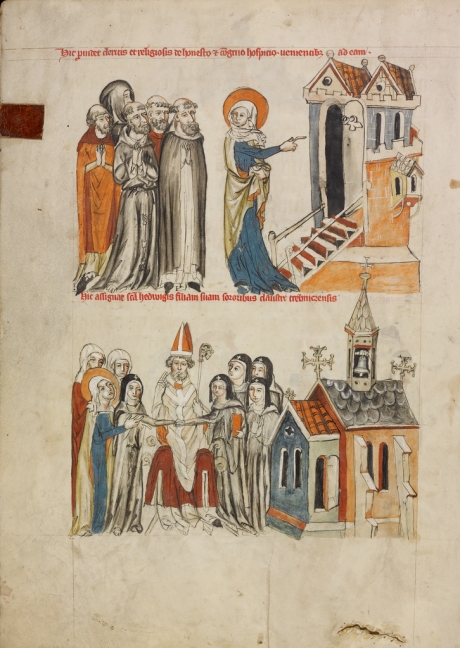 Hic providet clericis et religiosis de honesto & congruo hospitio venientibus ad eam.
Hic assignat sca hedwigis filiam suam sororibus claustri trebnicensis